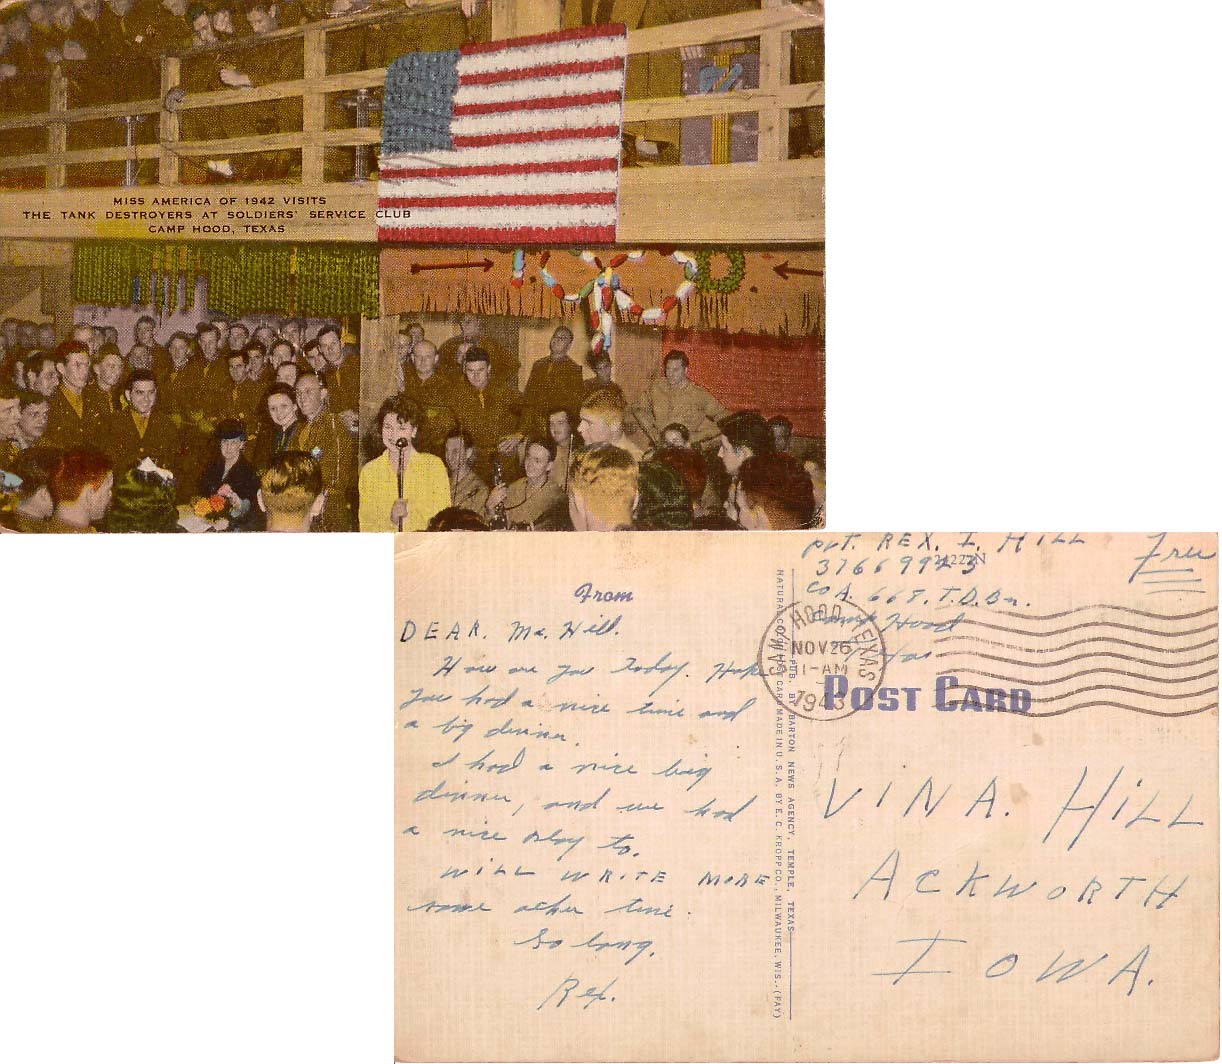 MISS AMERICA OF 1942 VISITS
THE TANK DESTROYERS AT SOLDIERS' SERVICE CLUB
CAMP HOOD, TEXAS
From
DEAR. Mr. Hill.
How are you today. Hope
you had a nice time and
a big dinner.
I had a nice big
dinner, and we had
a nice play to.
WILL WRITE MORE
some other time.
So long.
Rex.
NATURAL COLOR POST CARD MADE IN U. S. A. BY E. C. KROPP CO., MILWAUKEE, WIS. (PAY)
PUB. BY BARTON NEWS AGENCY, TEMPLE, TEXAS
PVT. REX. I. HILL
37669943
Co A. 668. T.D.Bn.
Camp Hood
Texas
Free
CAMP HOOD, TEXAS
NOV 26
11-AM
1943
POST CARD
VINA. HILL
ACKWORTH
IOWA.